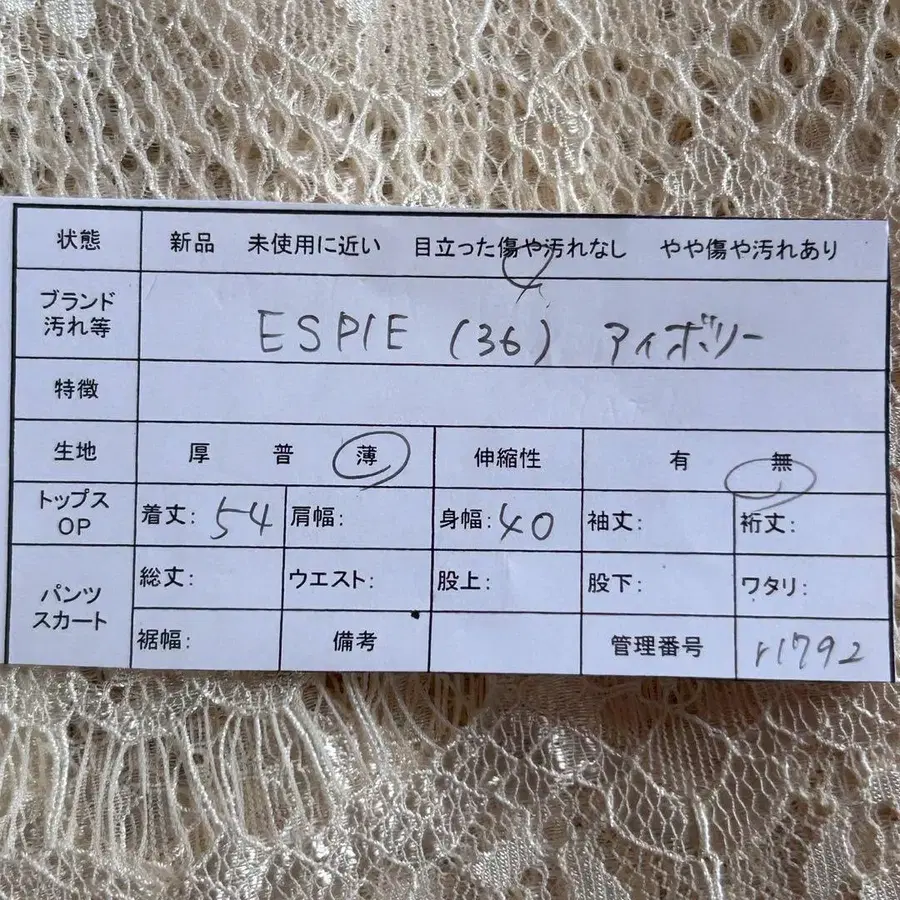 状態 新品 未使用に近い 目立った傷や汚れなし やや傷や汚れあり
ブランド
汚れ等
ESPIE (36) アイボリー
特徴
生地 厚 普 薄 伸縮性 有 無
トップス
OP
着丈: 54 肩幅: 身幅: 40 袖丈: 裄丈:
パンツ
スカート
総丈: ウエスト: 股上: 股下: ワタリ:
裾幅: 備考 管理番号 r1792